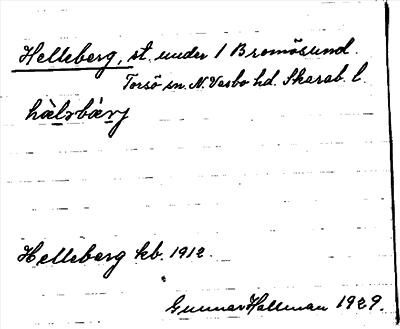 Helleberg, st. under 1 Bromösund.
Torsö sn. N. Vasbo hd. Skarab. l.
hàlsbàrj
Helleberg kb. 1912.
Gunnar Hallman 1929.